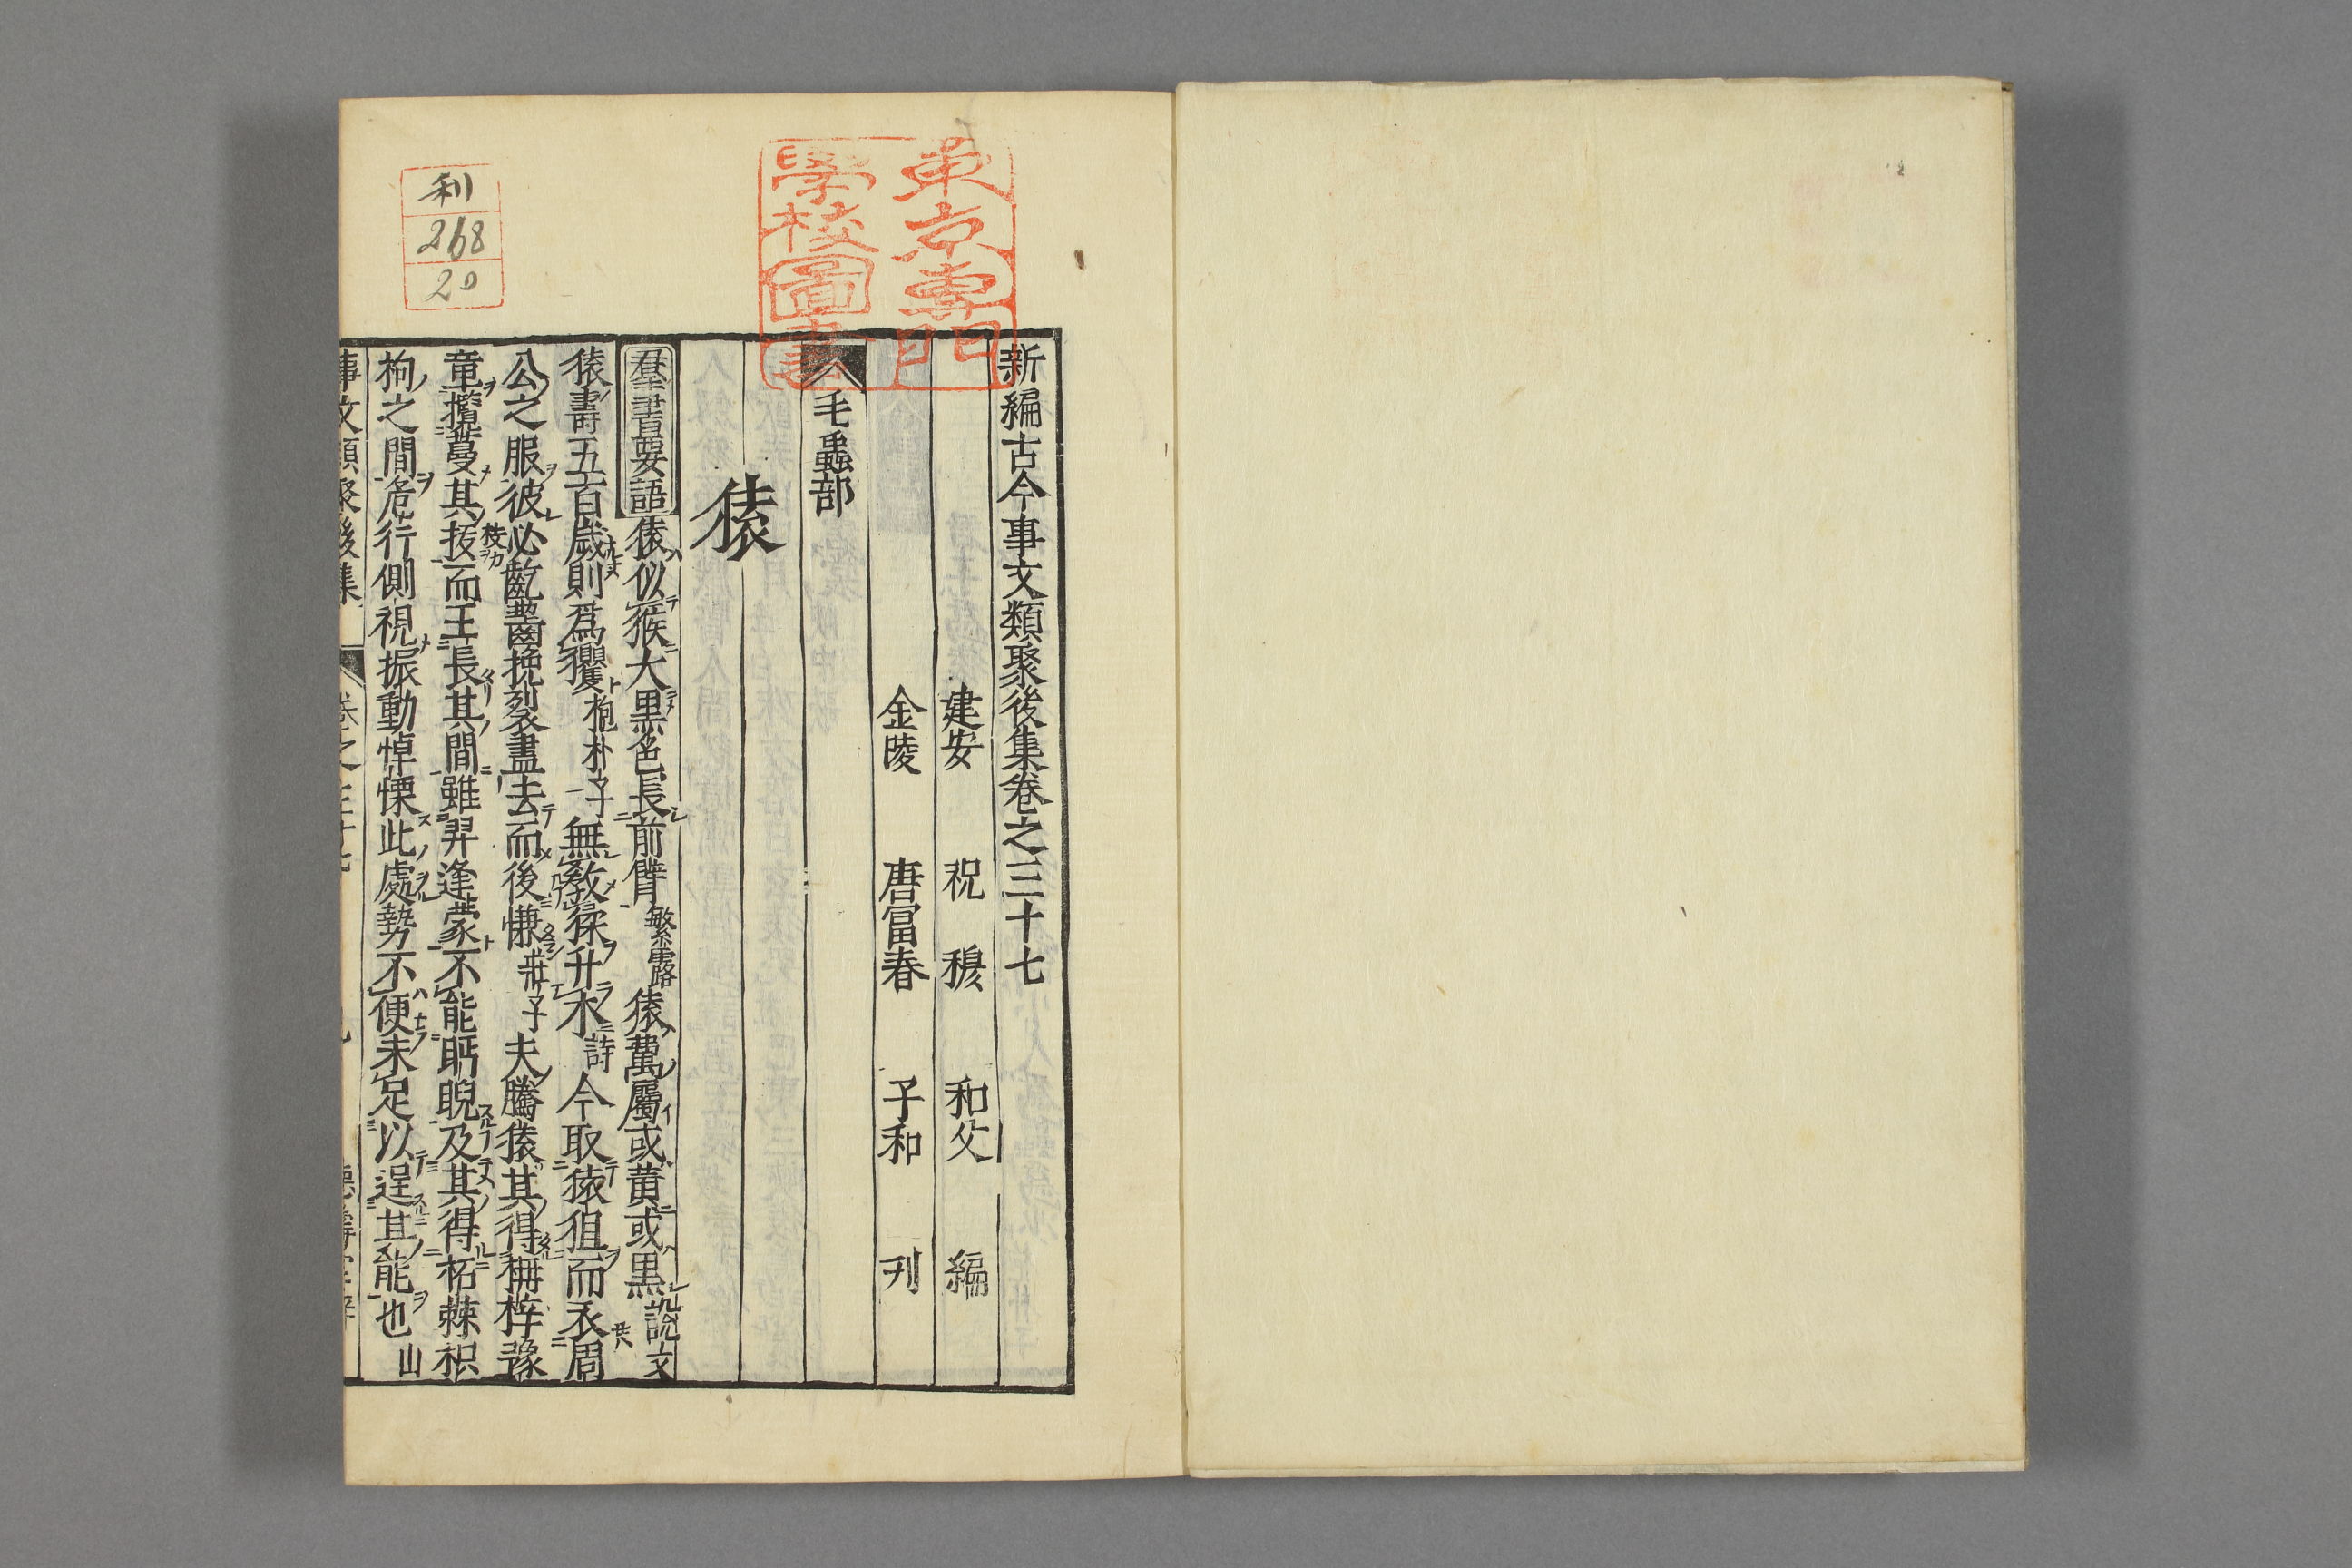 新編古今事文類聚後集卷之三十七
建安 祝 穆 和父 編
金陵 唐富春 子和 刋
毛蟲部
猿
羣書要語 猿似猴大黒色長前臂 繁露 猿蜼屬或黄或黒 說文
猿壽五百歲則爲玃 抱朴子 無敎猱升木 詩 今取猿狙而衣周
公之服彼必齕齧挽裂盡去而後慊 莊子 夫騰猿其得枏梓豫
章攬蔓其㧞而王長其間雖羿逢蒙不能眄睨及其得柘棘枳
枸之間危行側視振動悼慄此處勢不便未足以逞其能也 山
東京專門
學校圖書
利
268
20